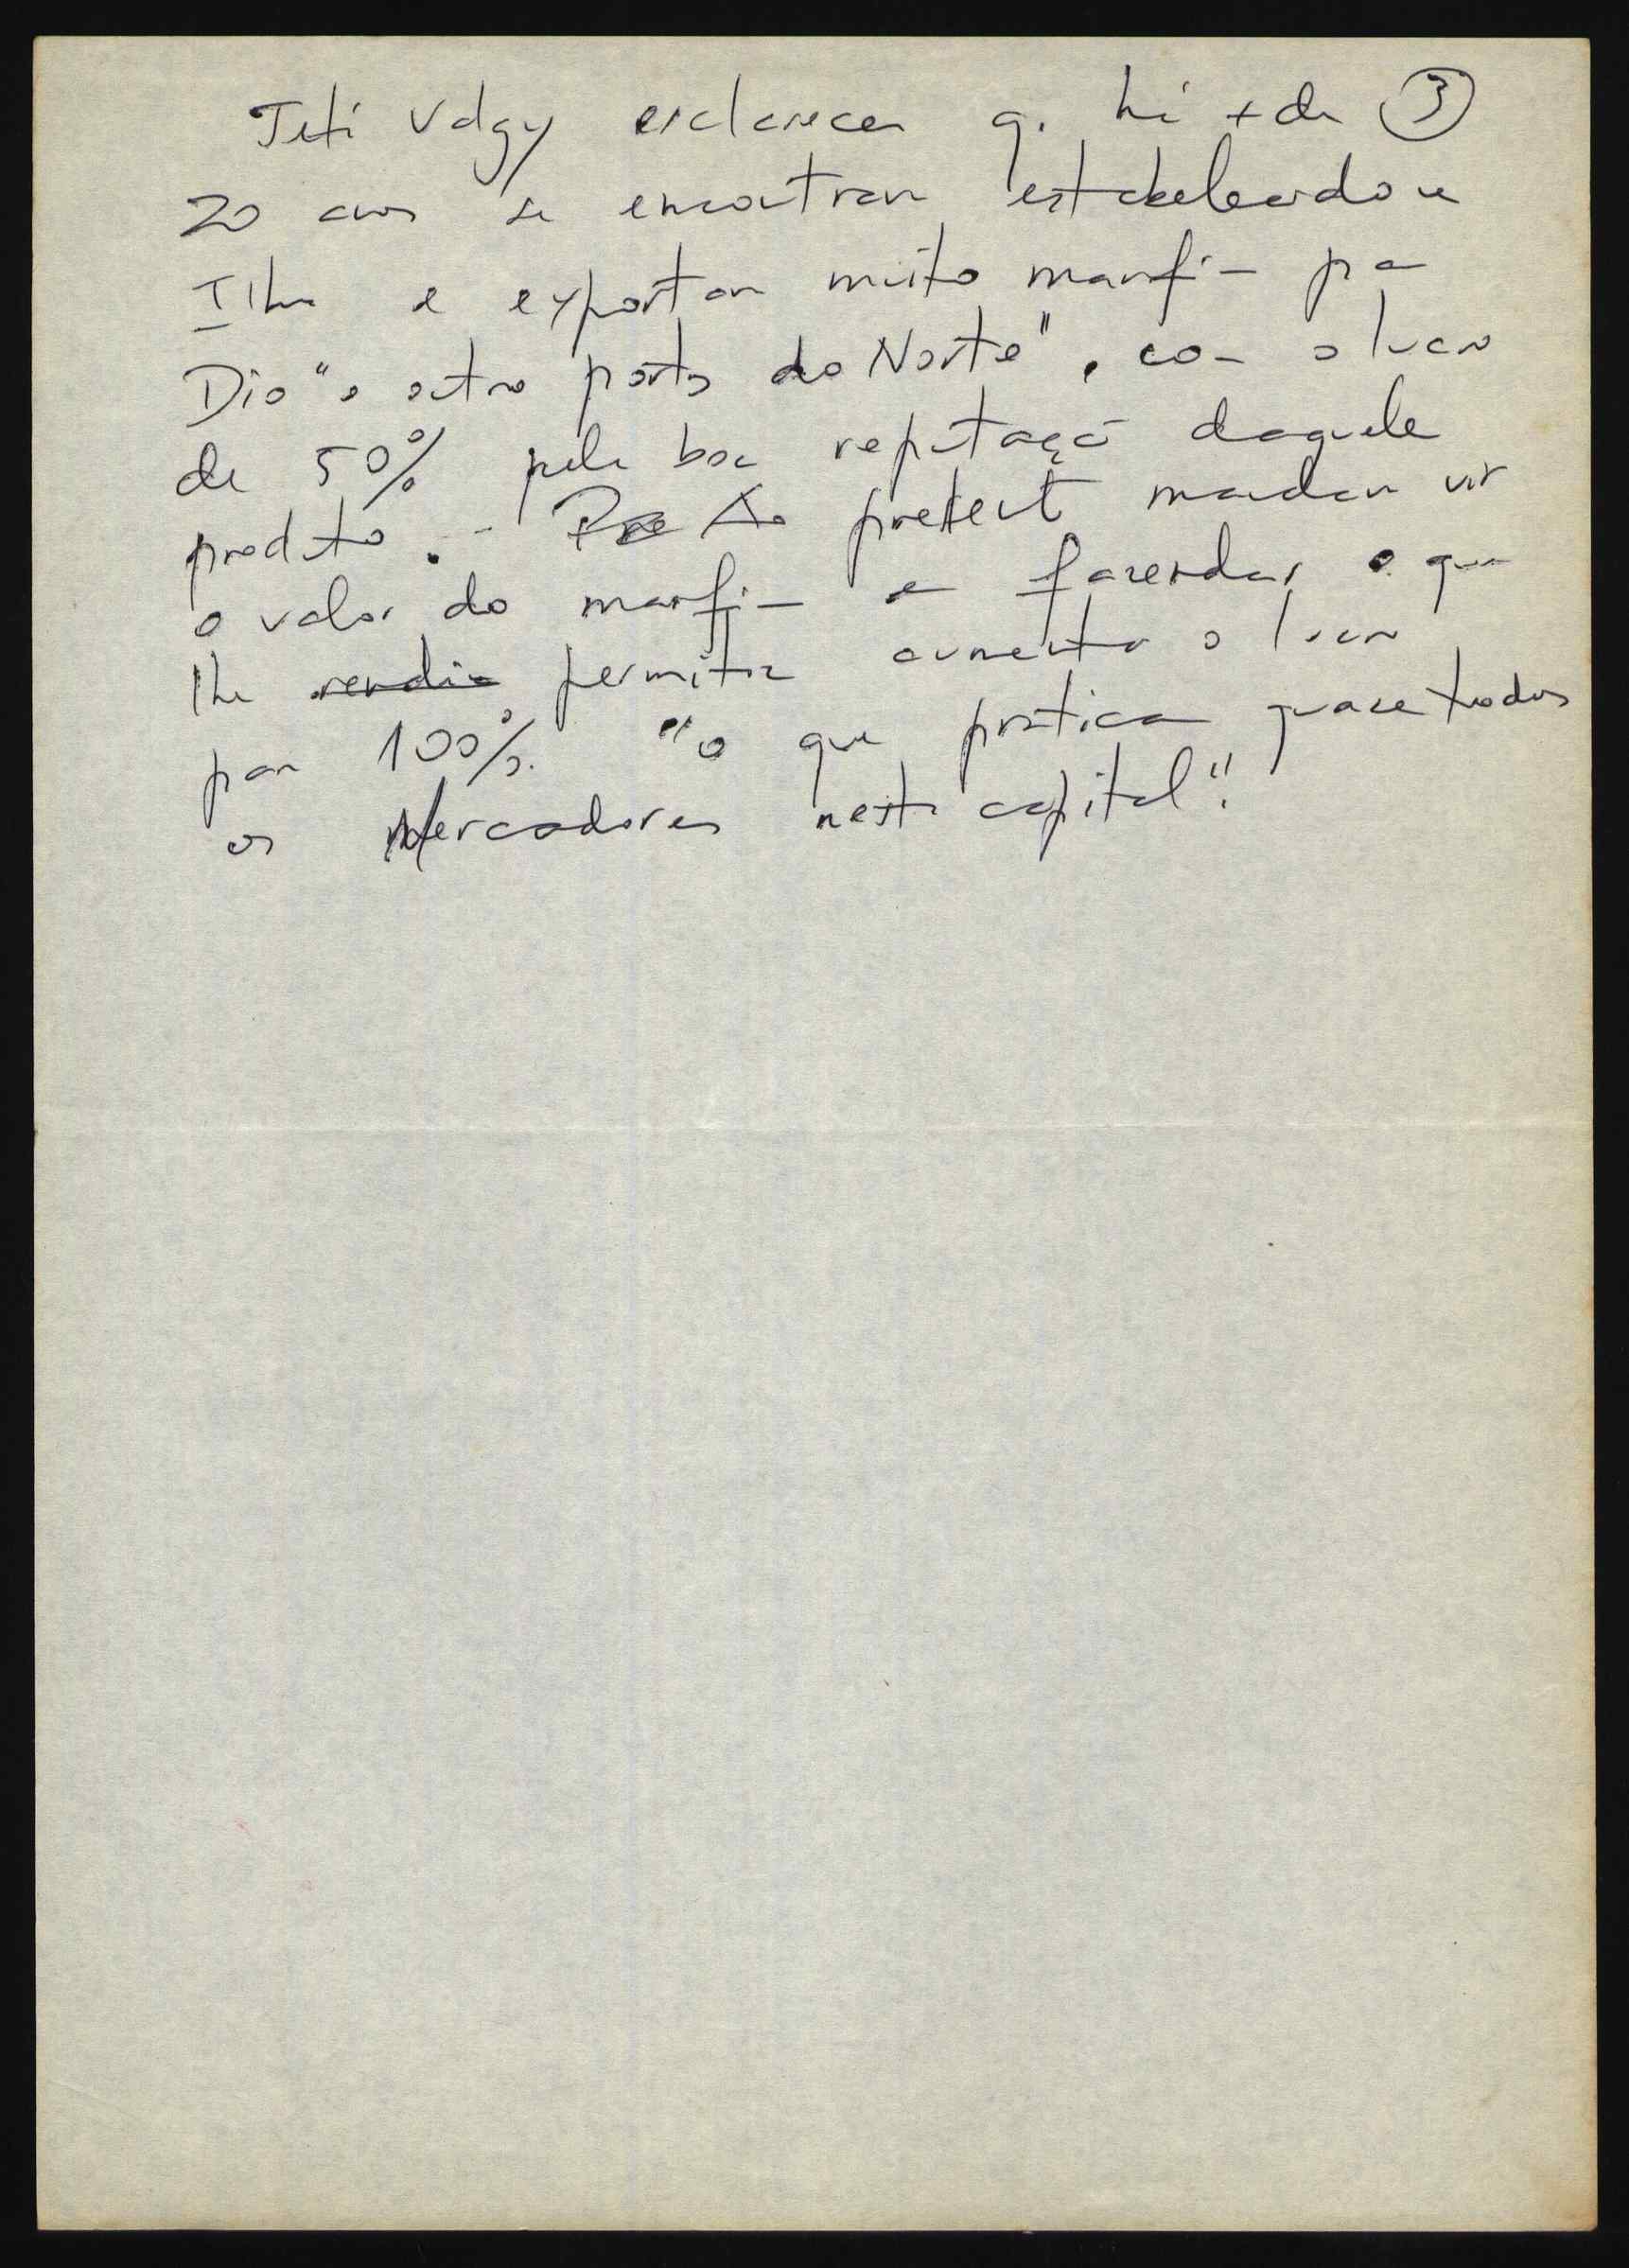 Jeti Valgy esclarecer q. há + de ③
20 anos se encontrava estabelecido na
Ilha e exportava muito marfim pa
Dio "e outros portos do Norte", com o lucro
de 50% pela boa reputação daquele
produto. - Ao pretexto mandava vir
o valor do marfim em fazendas, o que
lhe rendia permitia aumentar o lucro
para 100%. "o que pratica quase todos
os Mercadores nesta capital".